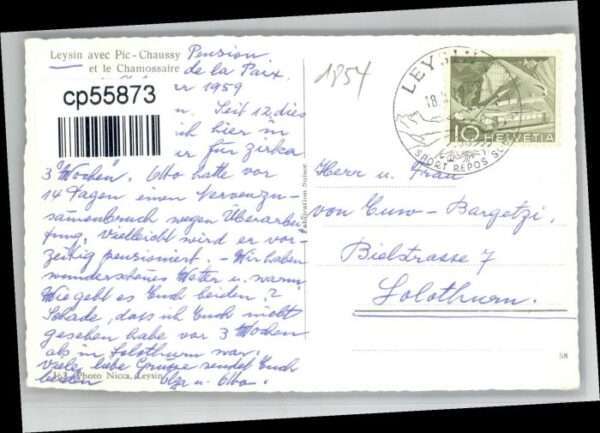 Leysin avec Pic-Chaussy
et le Chamossaire
Pension
de la Paix.
1959
cp55873
n. Seit 12. dies
ich hier in
für zirka
3 Wochen. Otto hatte vor
14 Tagen einen Nervenzu-
sammenbruch wegen Überarbei-
tung, vielleicht wird er vor-
zeitig pensioniert. - Wir haben
wunderschönes Wetter u. warm.
Wie geht es Euch beiden?
Schade, dass ich Euch nicht
gesehen habe vor 3 Wochen
als in Solothurn war.
Viele liebe Grüsse sendet Euch
beiden u. Otto.
Photo Nicca, Leysin
Publication Suisse
1854
LEYSIN
18.
SPORT REPOS
10 HELVETIA
Herr u. Frau
von Euw-Bargetzi,
Bielstrasse 7
Solothurn.
58